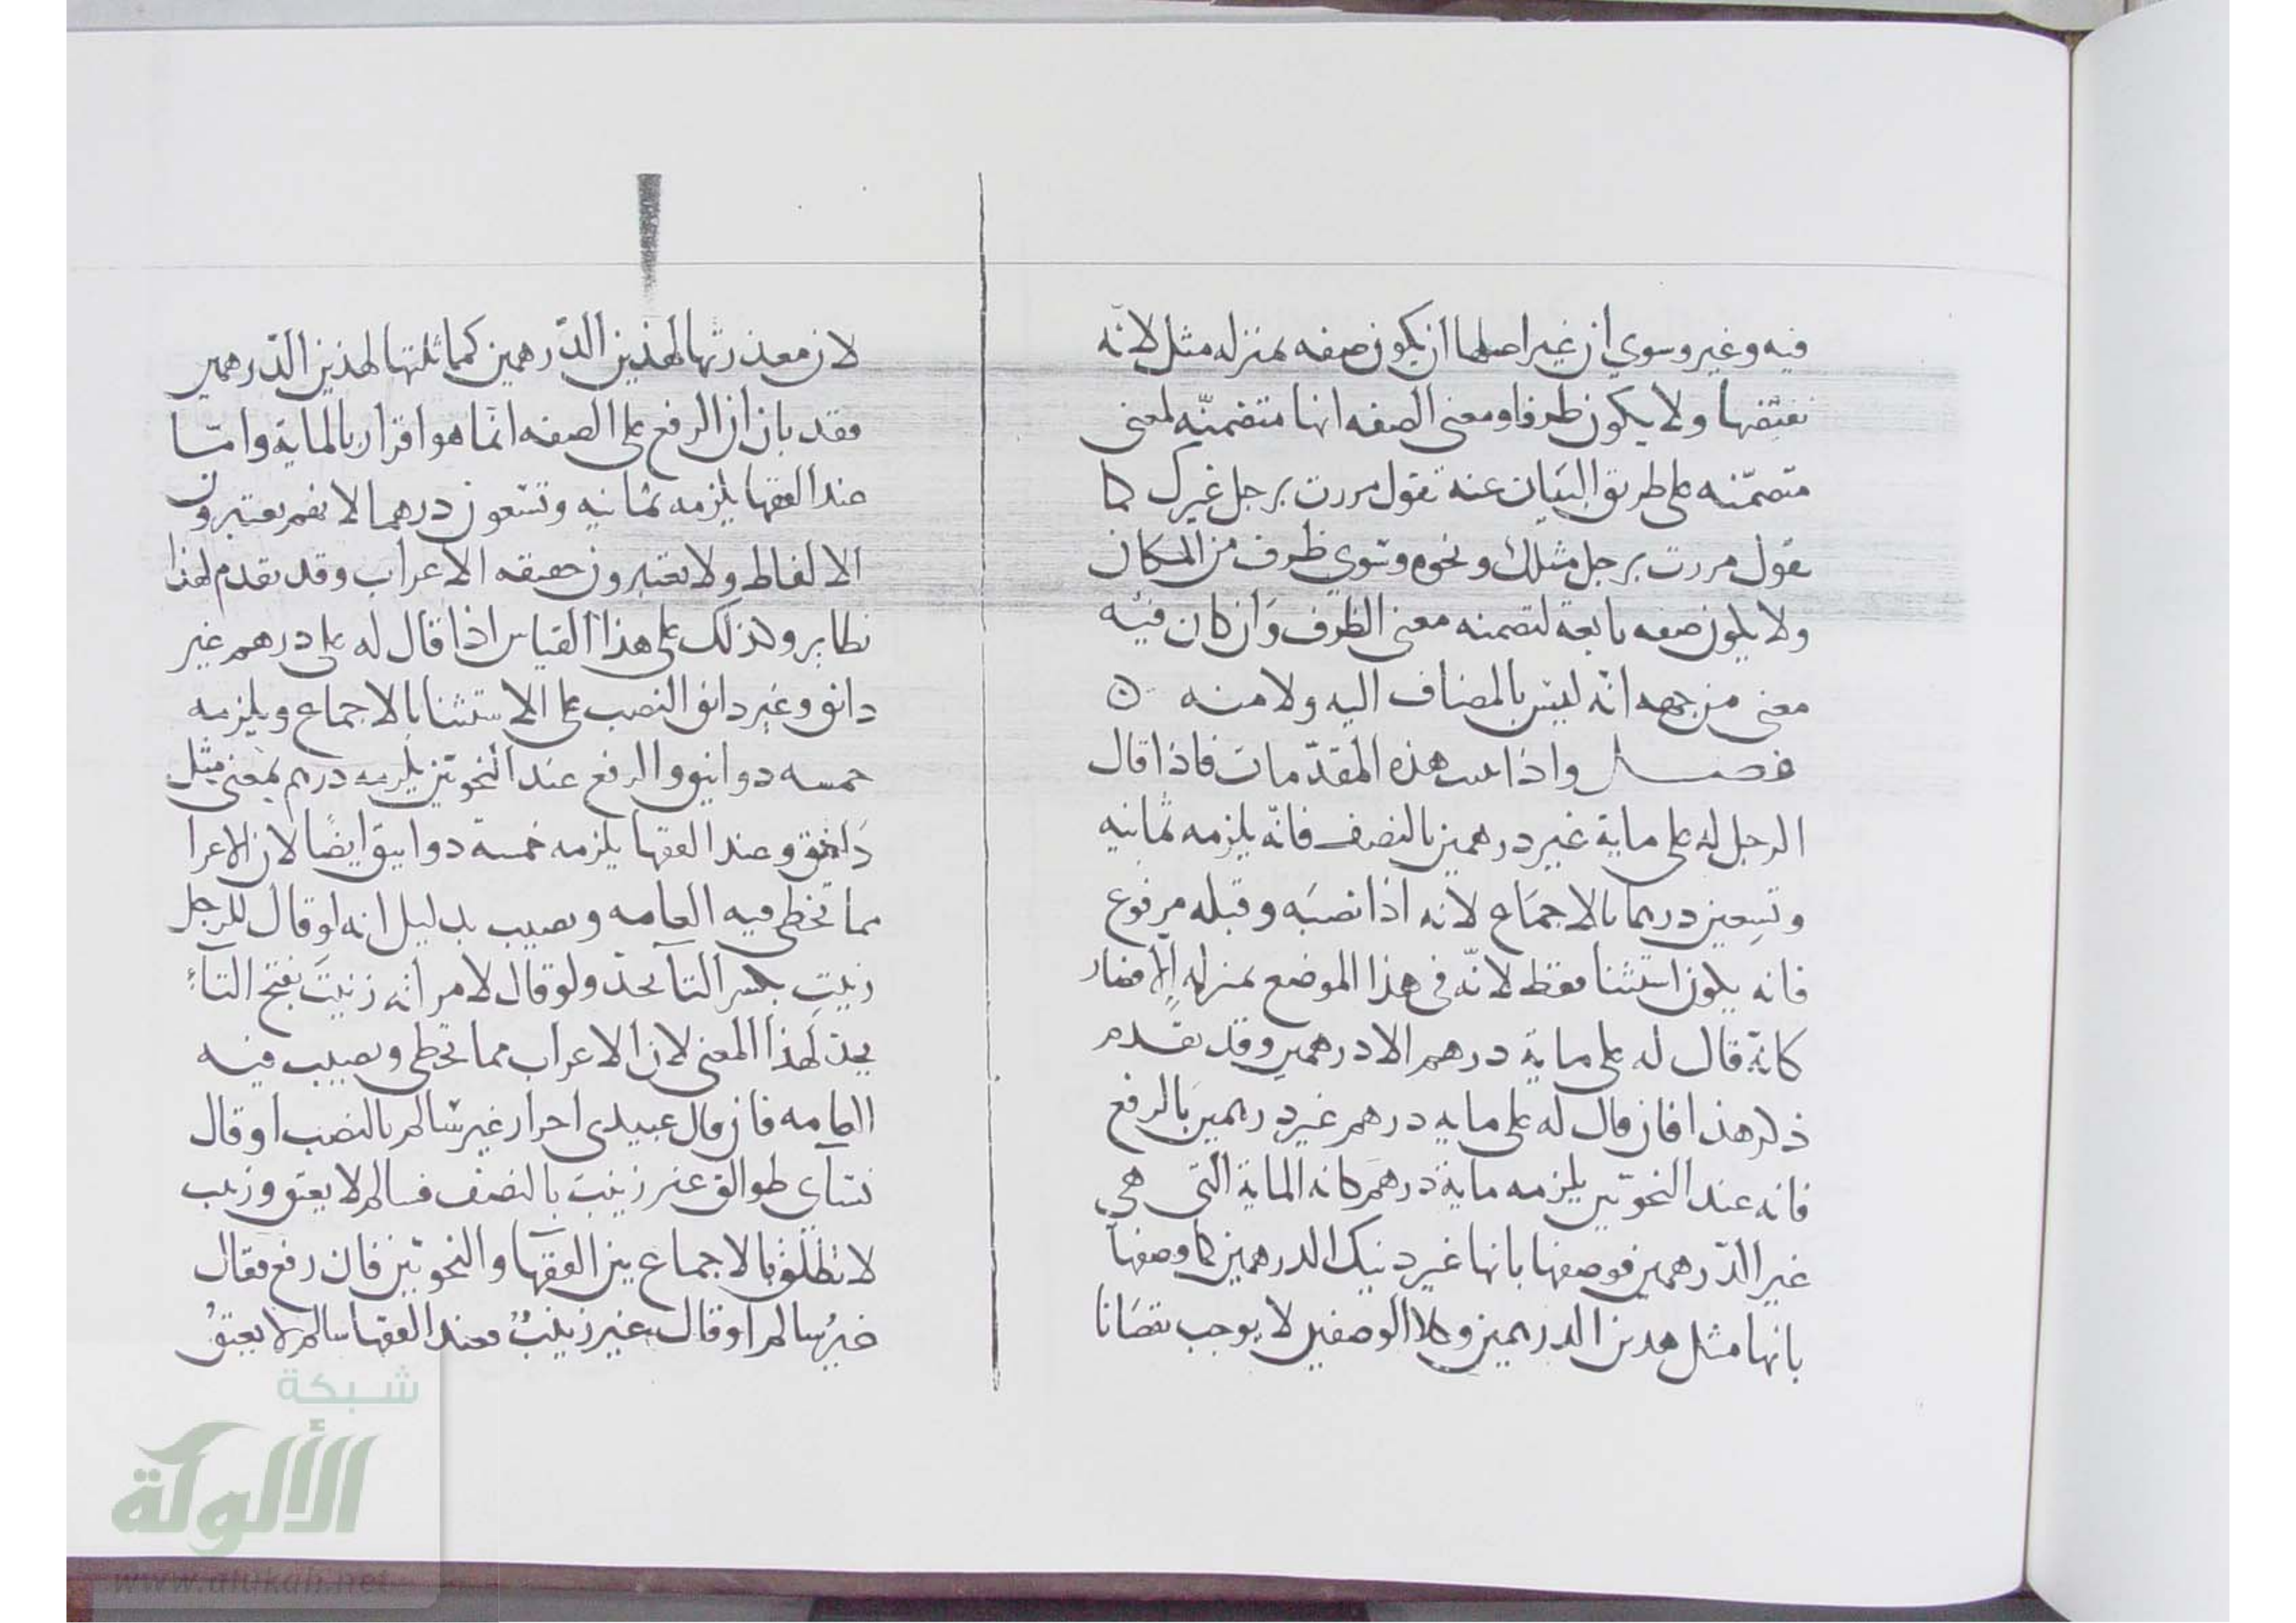 فيه وغير وسوي ان غير اصلها ان يكون صفه بمنزله مثل لانّه
نقيضها ولا يكون ظرفا ومعنى الصفه انها متضمنّه لمعنى
متضمّنه على طريق البيَان عنه تقول مررت برجل غيرك كما
تقول مررت برجل مثلك ونحوه وسَوي ظرف من المكان
ولا يكون صفه تابعة لتضمنه معنى الظرف وَان كان فيه
معنى من جهه انّه ليسَ بالمضاف اليه ولا منه ن
فصــل واذا هذه المقدّمات فاذا قال
الرجل له على ماية غير درهمين بالنصف فانّه يلزمه ثمانيه
وتسِعين درهما بالاجمَاع لانه اذا نصبَه وقبله مرفوع
فانه يكون استثنا فقط لانّه في هذا الموضع بمنزله
كانّهَ قال له على ماية درهم الا درهمين وقد تقدم
ذكر هذا فان قال له على مايه درهم غير درهمين بَالرفع
فانه عند النحوّيين يلزمه ماية درهم كانه الماية التي هي
غير الدّرهمين فوصفها بانها غير ذنيك الدرهمين كما وصفها
بانها مثل هذين الدرهمين وكلا الوصفين لا يوجب نقصَانا
لان لهذين الدّرهمين كما لهذين الدّرهمين
فقد بان ان الرفع على الصفه انّما هو اقرار بالماية وامّا
عند الفقها يلزمه ثمانيه وتسَعون درهما لانهم يعتبرون
الالفاظ ولا يعتبرون حقيقه الاعراب وقد تقدم لهذا
نظاير وكذلك على هذا القياس اذا قال له على درهم غير
دانق وغير دانق النصب على الاستثنا بالاجماع ويلزمه
خمسه دوانيق والرفع عند النحوّيين يلزمه درهم بمعنى مثل
دَانق وعند الفقها يلزمه خمسة دوانيق ايضًا لان الاعرا
مما تخطى فيه العامه وتصيب بدليل انه لو قال للرجل
زنيتِ بكسر التا يحدّ ولو قال لامراته زنيتَ بفتح التآءِ
يحدّ لهذا المعنى لان الاعراب مما تخطى وتصيب فيه
العامه فان قال عبيدى احرار غير سَالم بالنصب او قال
نسَآى طوالق غير زينبَ بالنصف فسالم لا يعتق وزينب
لا تطلّق بالاجماع بين الفقهآ والنحوّيين فان رفع فقال
غيرُ سالم او قال غير زينبٌ فعند الفقها سالم لا يعتقُ
شبكة
الألوكة
www.alukah.net